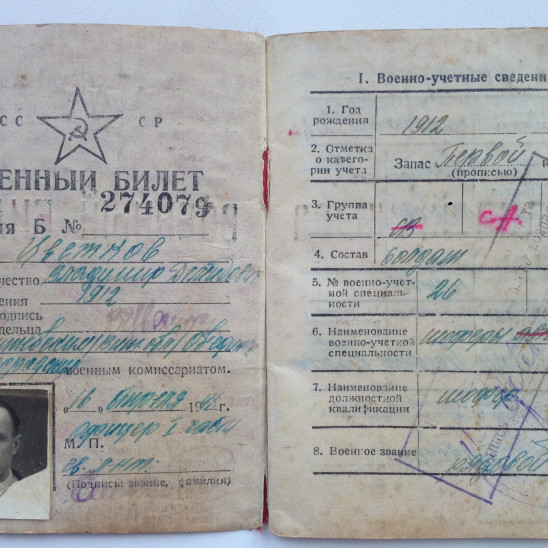 СС СР
ЕННЫЙ БИЛЕТ
ия Б № 274079
Цветков
чество Владимир
ения 1912
одпись
дельца
военным комиссариатом.
"16" апреля 19 г.
офицер 1 части
М. П.
гв. л-нт.
(Подписы звание, фамилия)
I. Военно-учетные сведени
1. Год рождения 1912
2. Отметка о катего-
рии учета Запас Первой
(прописью)
3. Группа учета са СА
4. Состав солдат
5. № военно-учет-
ной специаль-
ности 26
6. Наименование
военно-учетной
специальности шоферы
7. Наименование
должностной
квалификации шофер
8. Военное звание рядовой